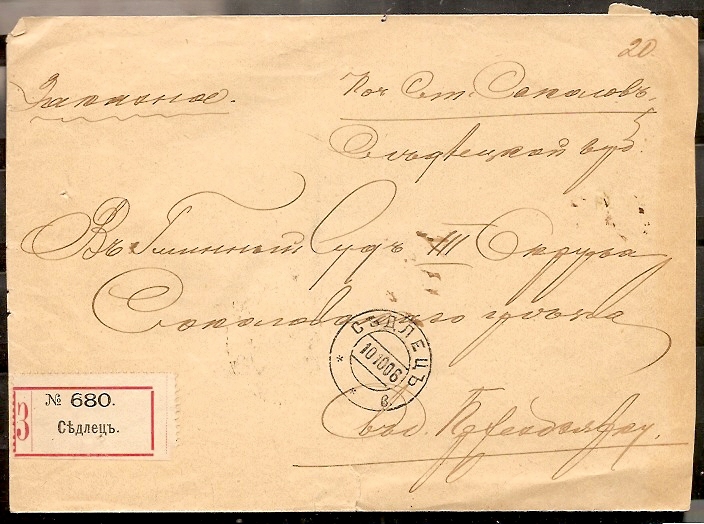 20.
Заказное.
Поч. Ст. Соколовъ,
Сѣдлецкой губ.
Въ Гминный Судъ III Округа
Соколовскаго уѣзда
СѢДЛЕЦЪ
101006
в.
З
№ 680.
Сѣдлецъ.